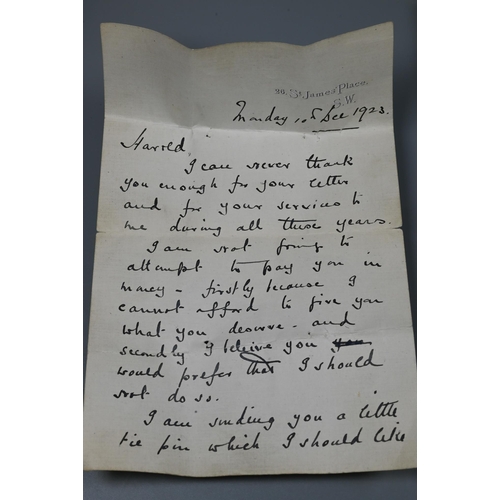 26, St James' Place,
S.W.
Monday 10th Dec 1923.
Harold
I can never thank
you enough for your letter
and for your services to
me during all these years.
I am not going to
attempt to pay you in
money - firstly because I
cannot afford to give you
what you deserve - and
secondly I beleive you you
would prefer that I should
not do so.
I am sending you a little
tie pin which I should like